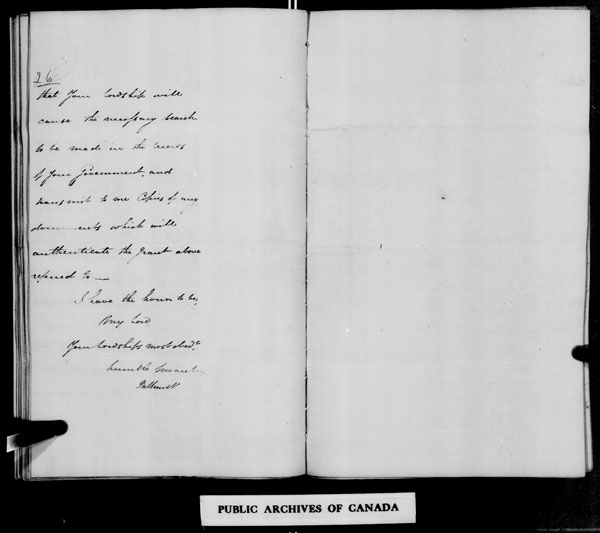 26
that Your Lordship will
cause the necessary search
to be made in the records
of Your Government, and
transmit to me Copies of any
documents which will
authenticate the Grant above
referred to —
I have the honor to be,
My Lord
Your Lordship's most obedt
humble Servant
Bathurst
PUBLIC ARCHIVES OF CANADA